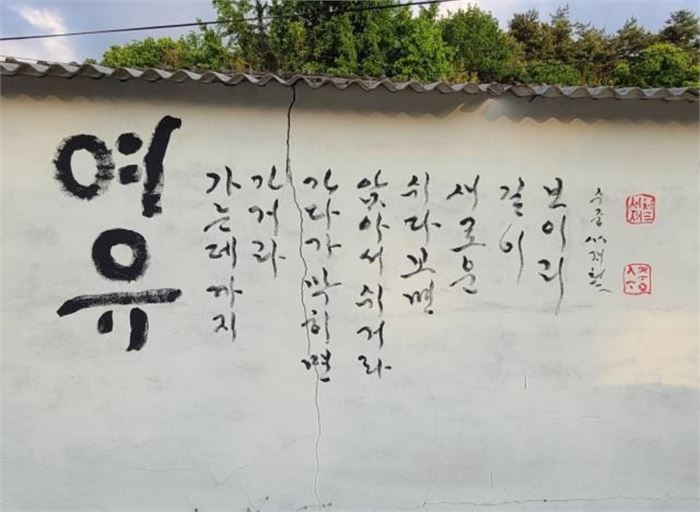 여유
가는데까지
가거라
가다가 막히면
앉아서 쉬거라
쉬다보면
새로운
길이
보이리
수중 서재